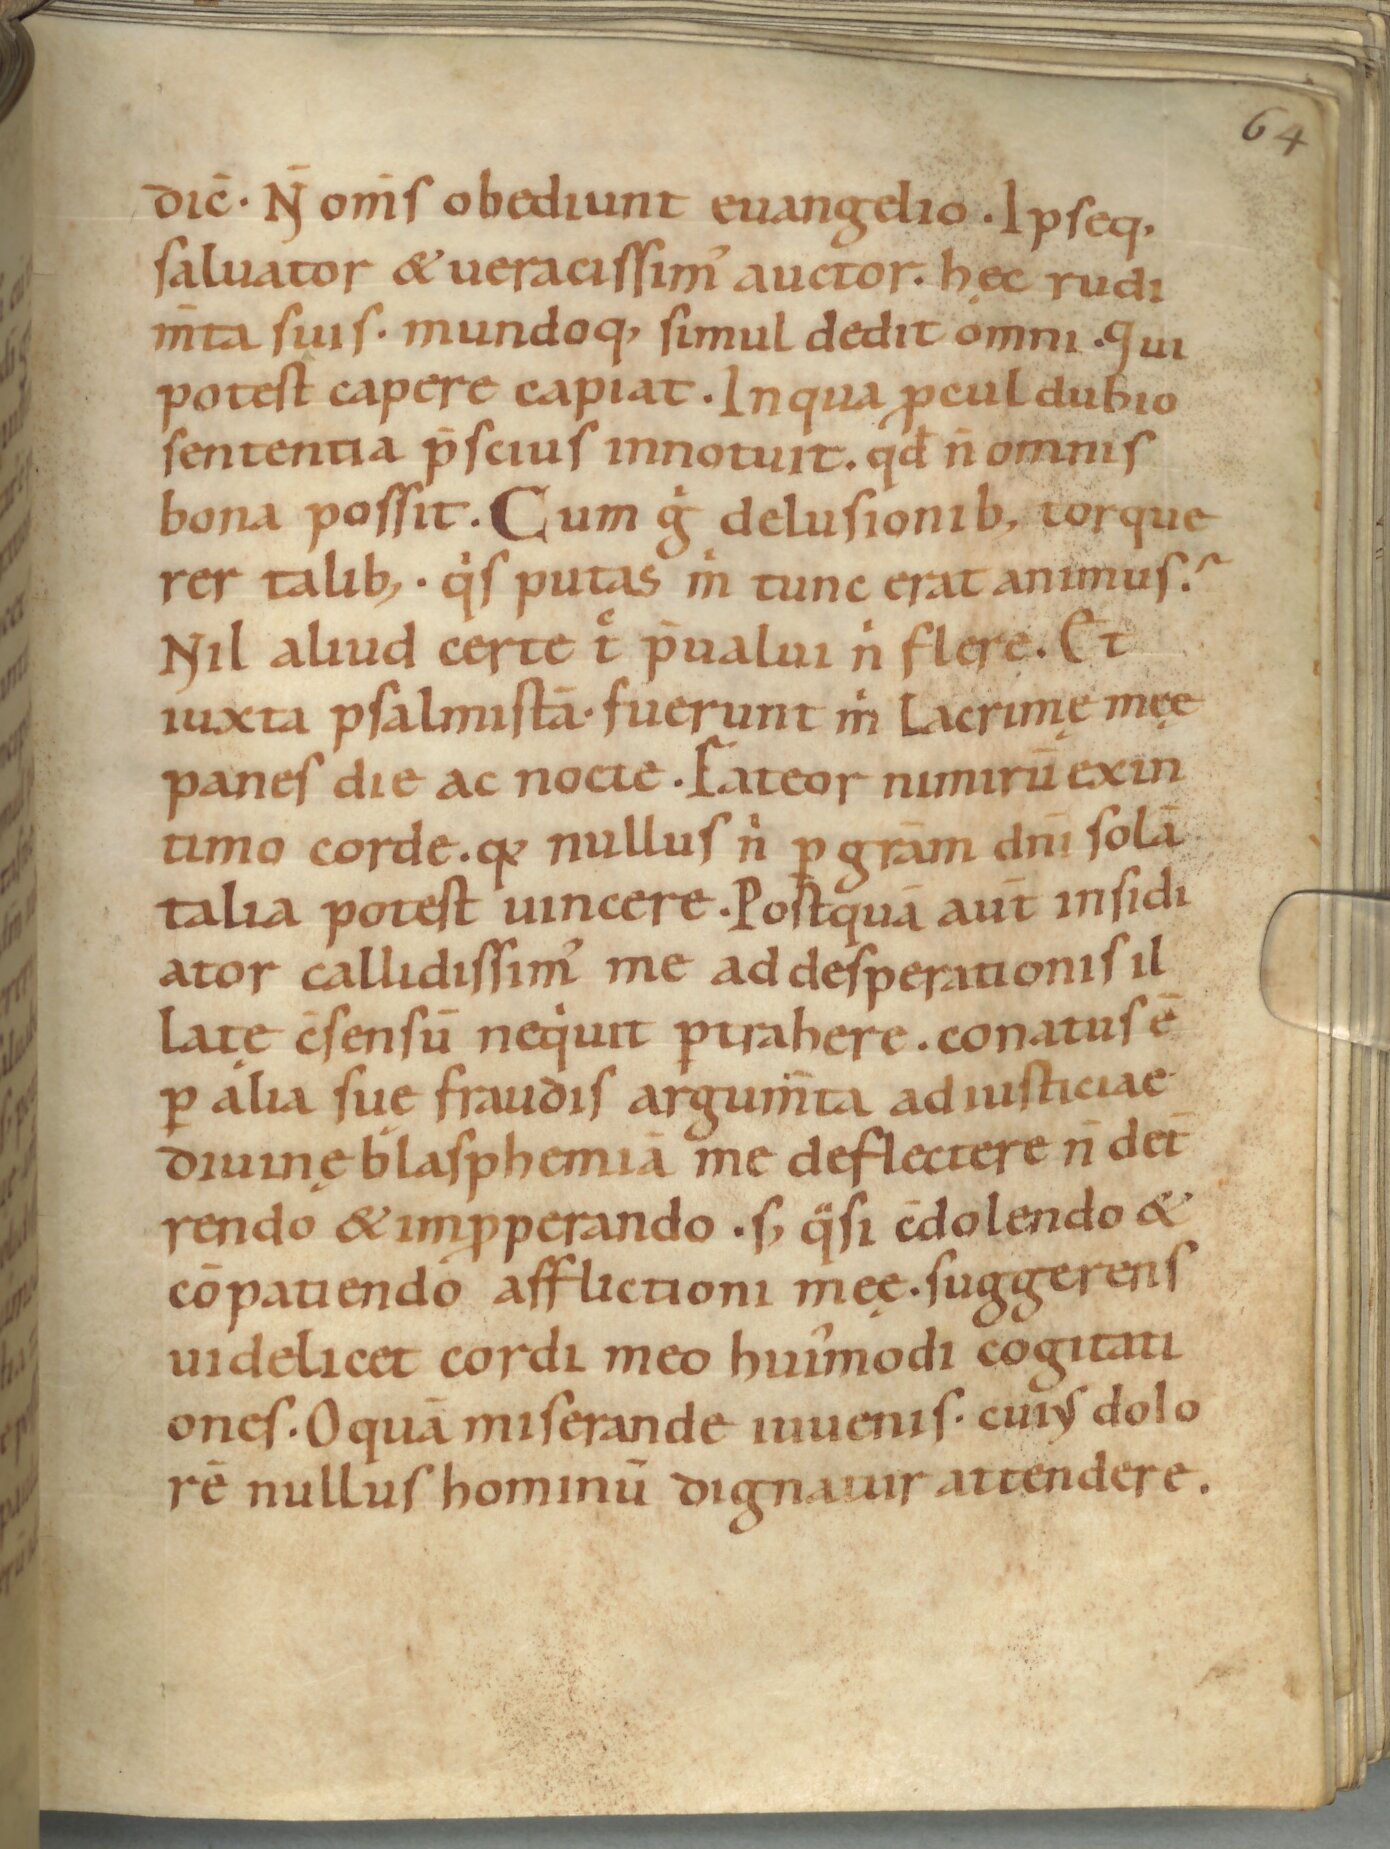 64
dic̄. N̄ om̄s obediunt euangelio. Ipseq,
saluator & ueracissim᾽ auctor. hęc rudi
m̄ta suis. mundoq, simul dedit omni. Qui
potest capere capiat. In qua ꝓcul dubio
sententia p̄scius innotuit. qd̄ n̄ omnis
bona possit. Cum gͥ delusionib, torque
rer talib,. qͥs putas mͥ tunc erat animus?
Nil aliud certe tͨ p̄ualui nͥ flere. Et
iuxta psalmistā. fuerunt mͥ Lacrimę męę
panes die ac nocte. Fateor nimirū ex in
timo corde. qꝛ nullus nͥ ꝑ grām dnī solā
talia potest uincere. Postquā aut̄ insidi
ator callidissim᾽ me ad desperationis il
latę c̄sensū neqͥuit ꝑtrahere. conatus ē
ꝑ alia suę fraudis argum̄ta ad iusticiae
diuinę blasphemiā me deflectere n̄ det̄
rendo & imꝓperando. s, qͣsi c̄dolendo &
cōpatiendo afflictioni męę. suggerens
uidelicet cordi meo hui᾽modi cogitati
ones. O quā miserande iuuenis. cuius dolo
rē nullus hominū dignatur attendere.